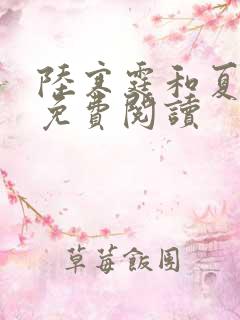 陸寒霆和夏
免費閱讀
草莓飯團